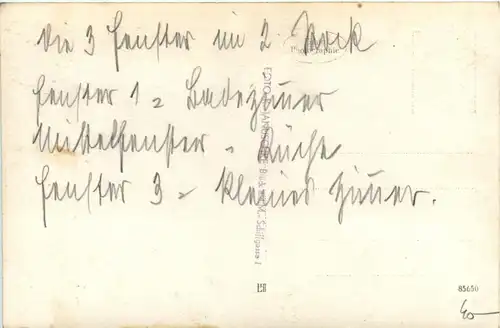 Die 3 Fenster im 2 Stock
Fenster 1 = Badezimmer
Mittelfenster = Küche
Fenster 3 = kleines Zimmer.
85650